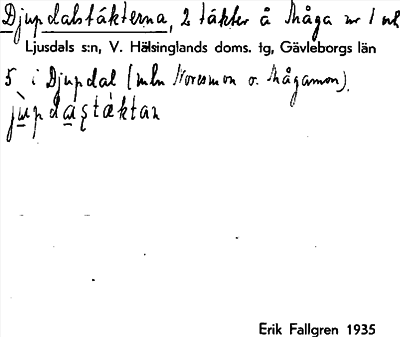 Djupdalstäkterna, 2 täkter å Måga nr 1 ml
Ljusdals s:n, V. Hälsinglands doms. tg, Gävleborgs län
5 i Djupdal (mln Storsmon o. Mågamon).
jùpdaştäktan
Erik Fallgren 1935